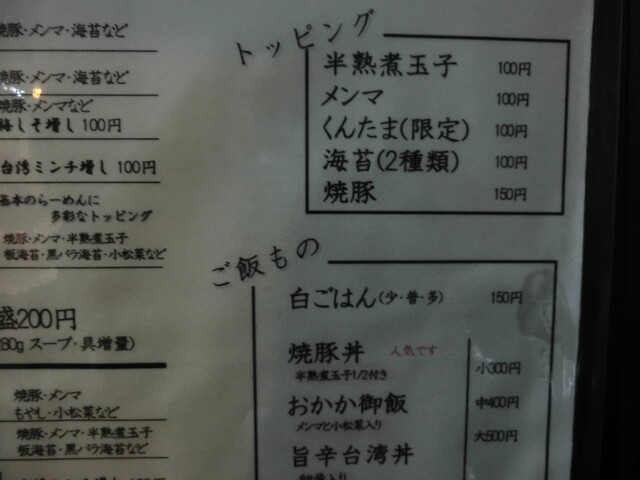 焼豚・メンマ・海苔など
焼豚・メンマ・海苔など
焼豚・メンマなど
梅しそ増し 100円
台湾ミンチ増し 100円
基本のらーめんに
多彩なトッピング
焼豚・メンマ・半熟煮玉子
板海苔・黒バラ海苔・小松菜など
盛200円
80g スープ・具増量)
焼豚・メンマ
もやし・小松菜など
焼豚・メンマ・半熟煮玉子
板海苔・黒バラ海苔など
トッピング
半熟煮玉子 100円
メンマ 100円
くんたま(限定) 100円
海苔(2種類) 100円
焼豚 150円
ご飯もの
白ごはん(少・普・多) 150円
焼豚丼 人気です
半熟煮玉子1/2付き
小300円
おかか御飯
中400円
メンマと小松菜入り
大500円
旨辛台湾丼